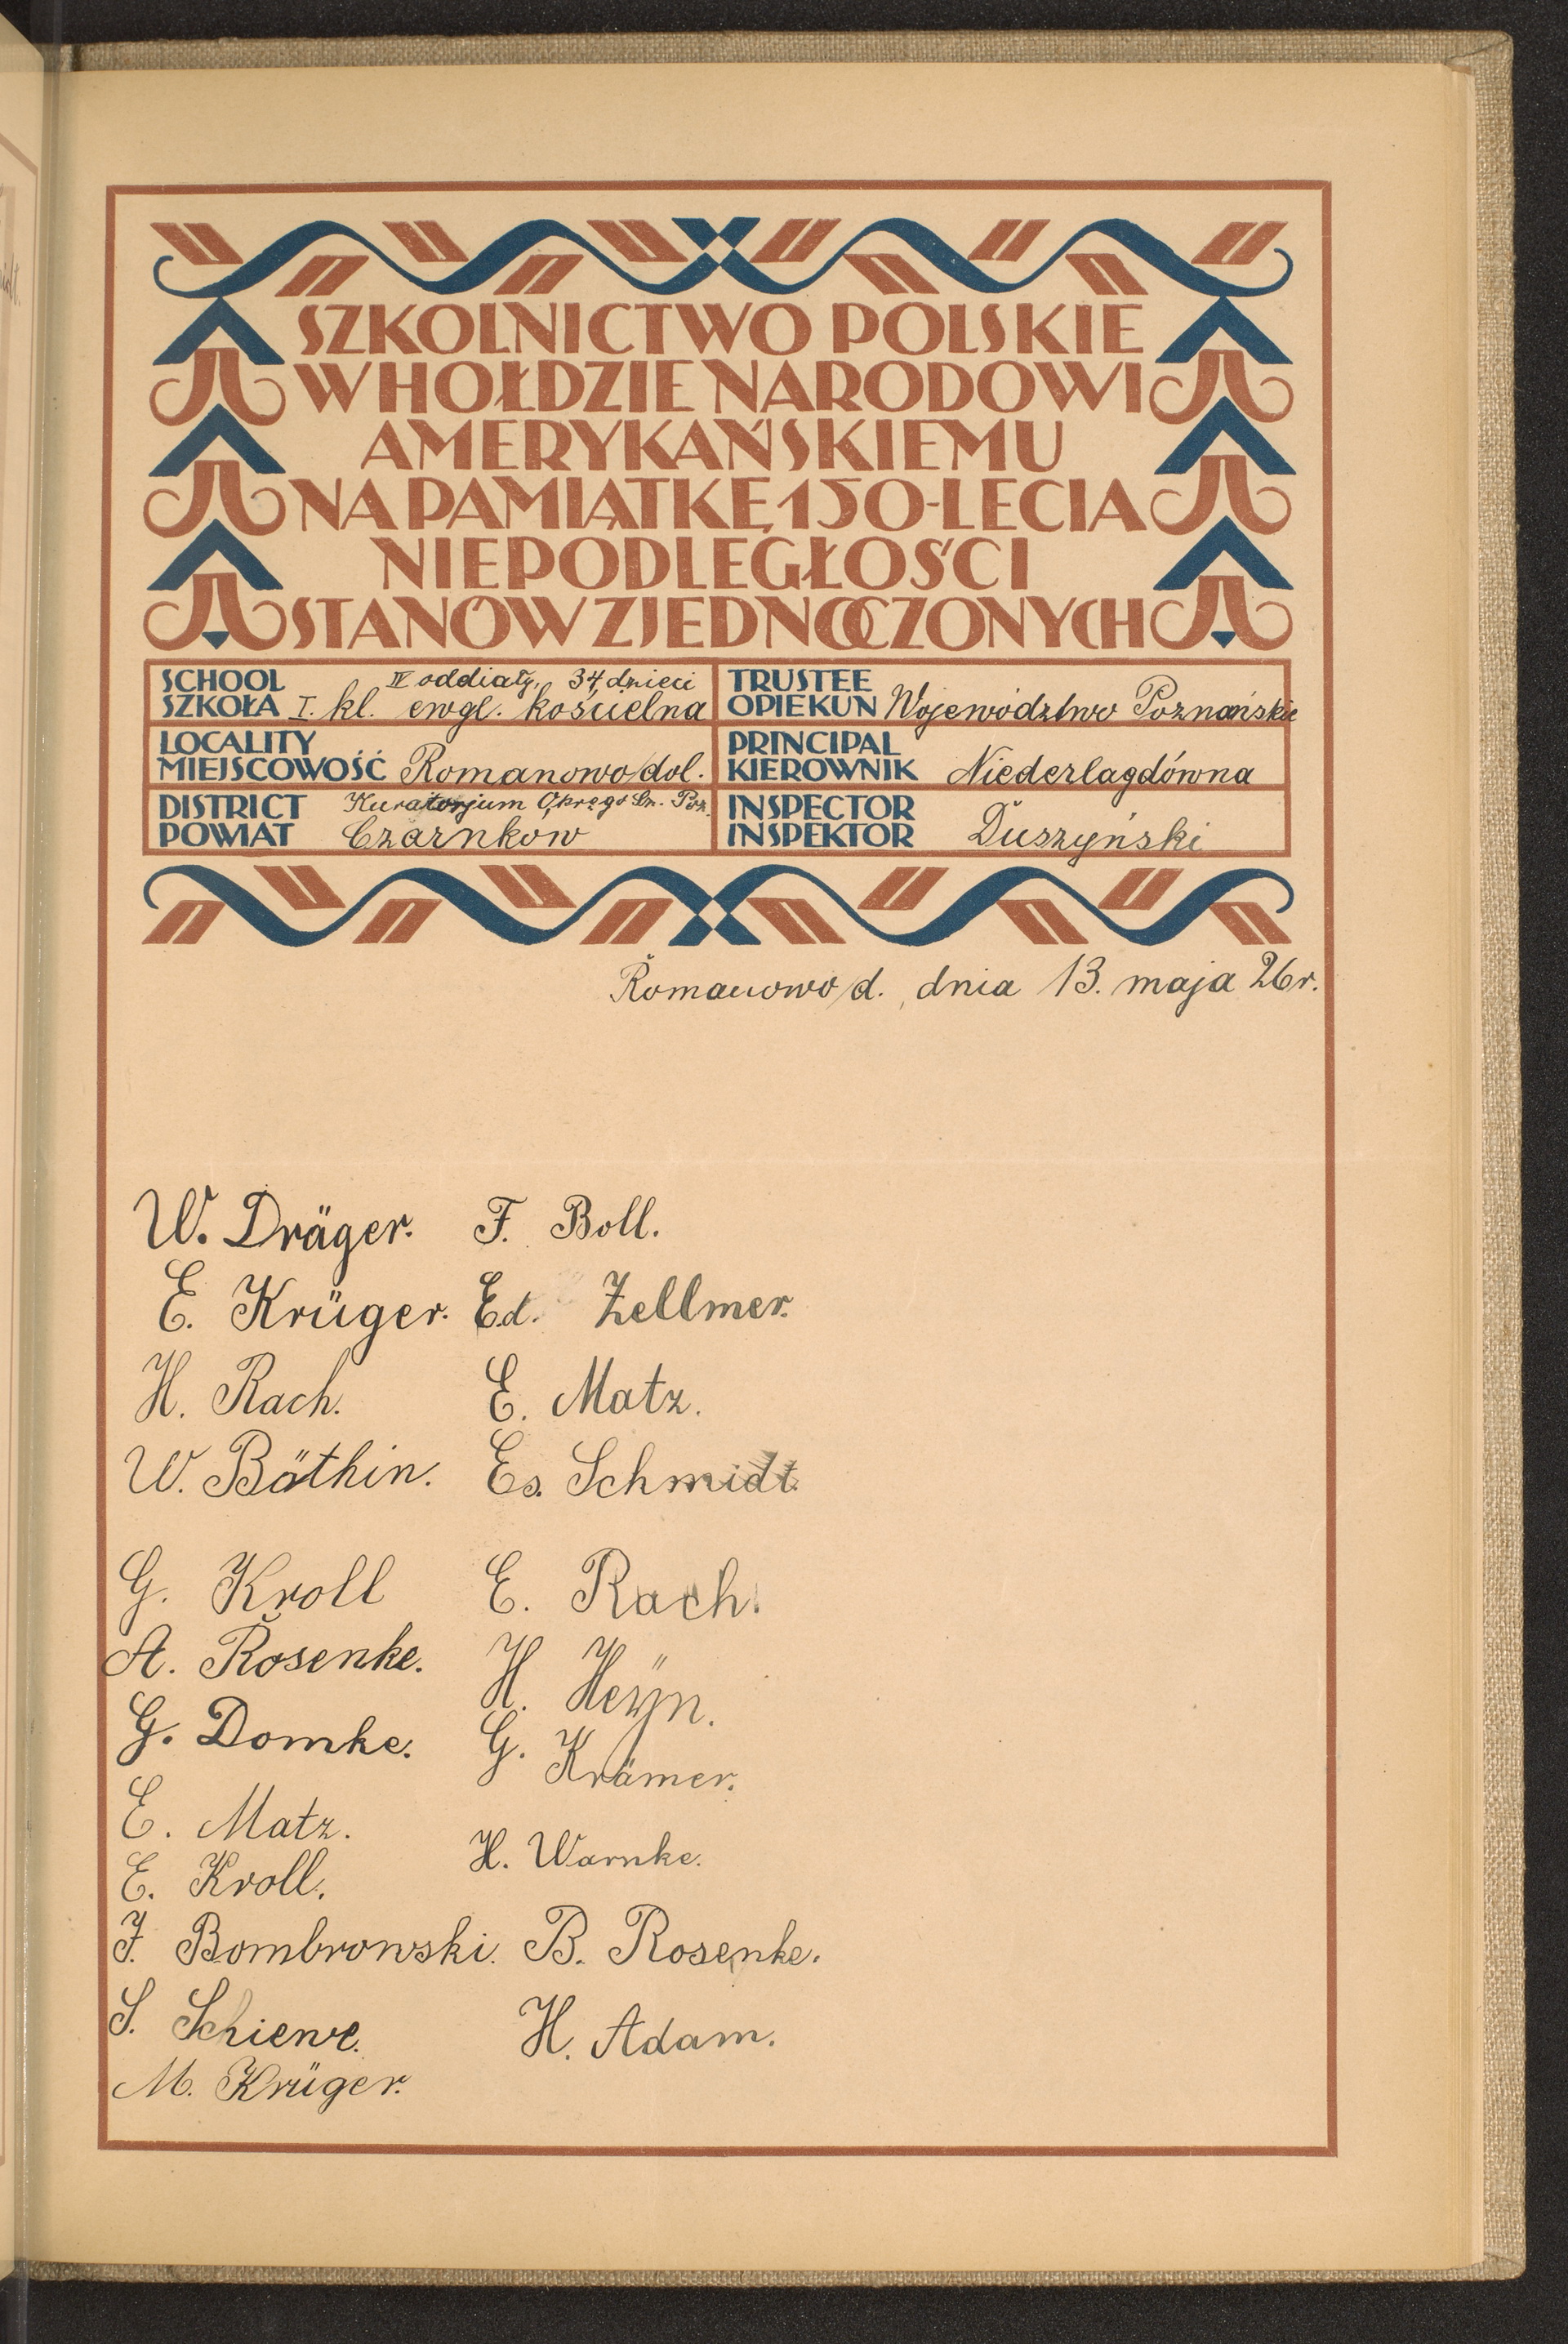 SZKOLNICTWO POLSKIE
W HOŁDZIE NARODOWI
AMERYKAŃSKIEMU
NA PAMIĄTKĘ 150-LECIA
NIEPODLEGŁOŚCI
STANÓW ZJEDNOCZONYCH
SCHOOL IV oddiały, 34 dzieci
SZKOŁA I. kl. ewgl. kościelna
TRUSTEE
OPIEKUN Województwo Poznańskie
LOCALITY
MIEJSCOWOŚĆ Romanowo/dol.
PRINCIPAL
KIEROWNIK Niederlagdówna
DISTRICT Kuratorjum Okręgo Sz. Poz.
POWIAT Czarnkow
INSPECTOR
INSPEKTOR Duszyński
Romanowo/d., dnia 13. maja 26 r.
W. Dräger.
E. Krüger.
H. Rach.
W. Bäthin.
G. Kroll
A. Rosenke.
G. Domke.
E. Matz.
E. Kroll.
F. Bombrowski.
S. Schiewe.
M. Krüger.
F. Boll.
Ed. Zellmer.
E. Matz.
Es. Schmidt.
E. Rach.
H. Heÿn.
G. Krämer.
H. Warnke.
B. Rosenke.
H. Adam.